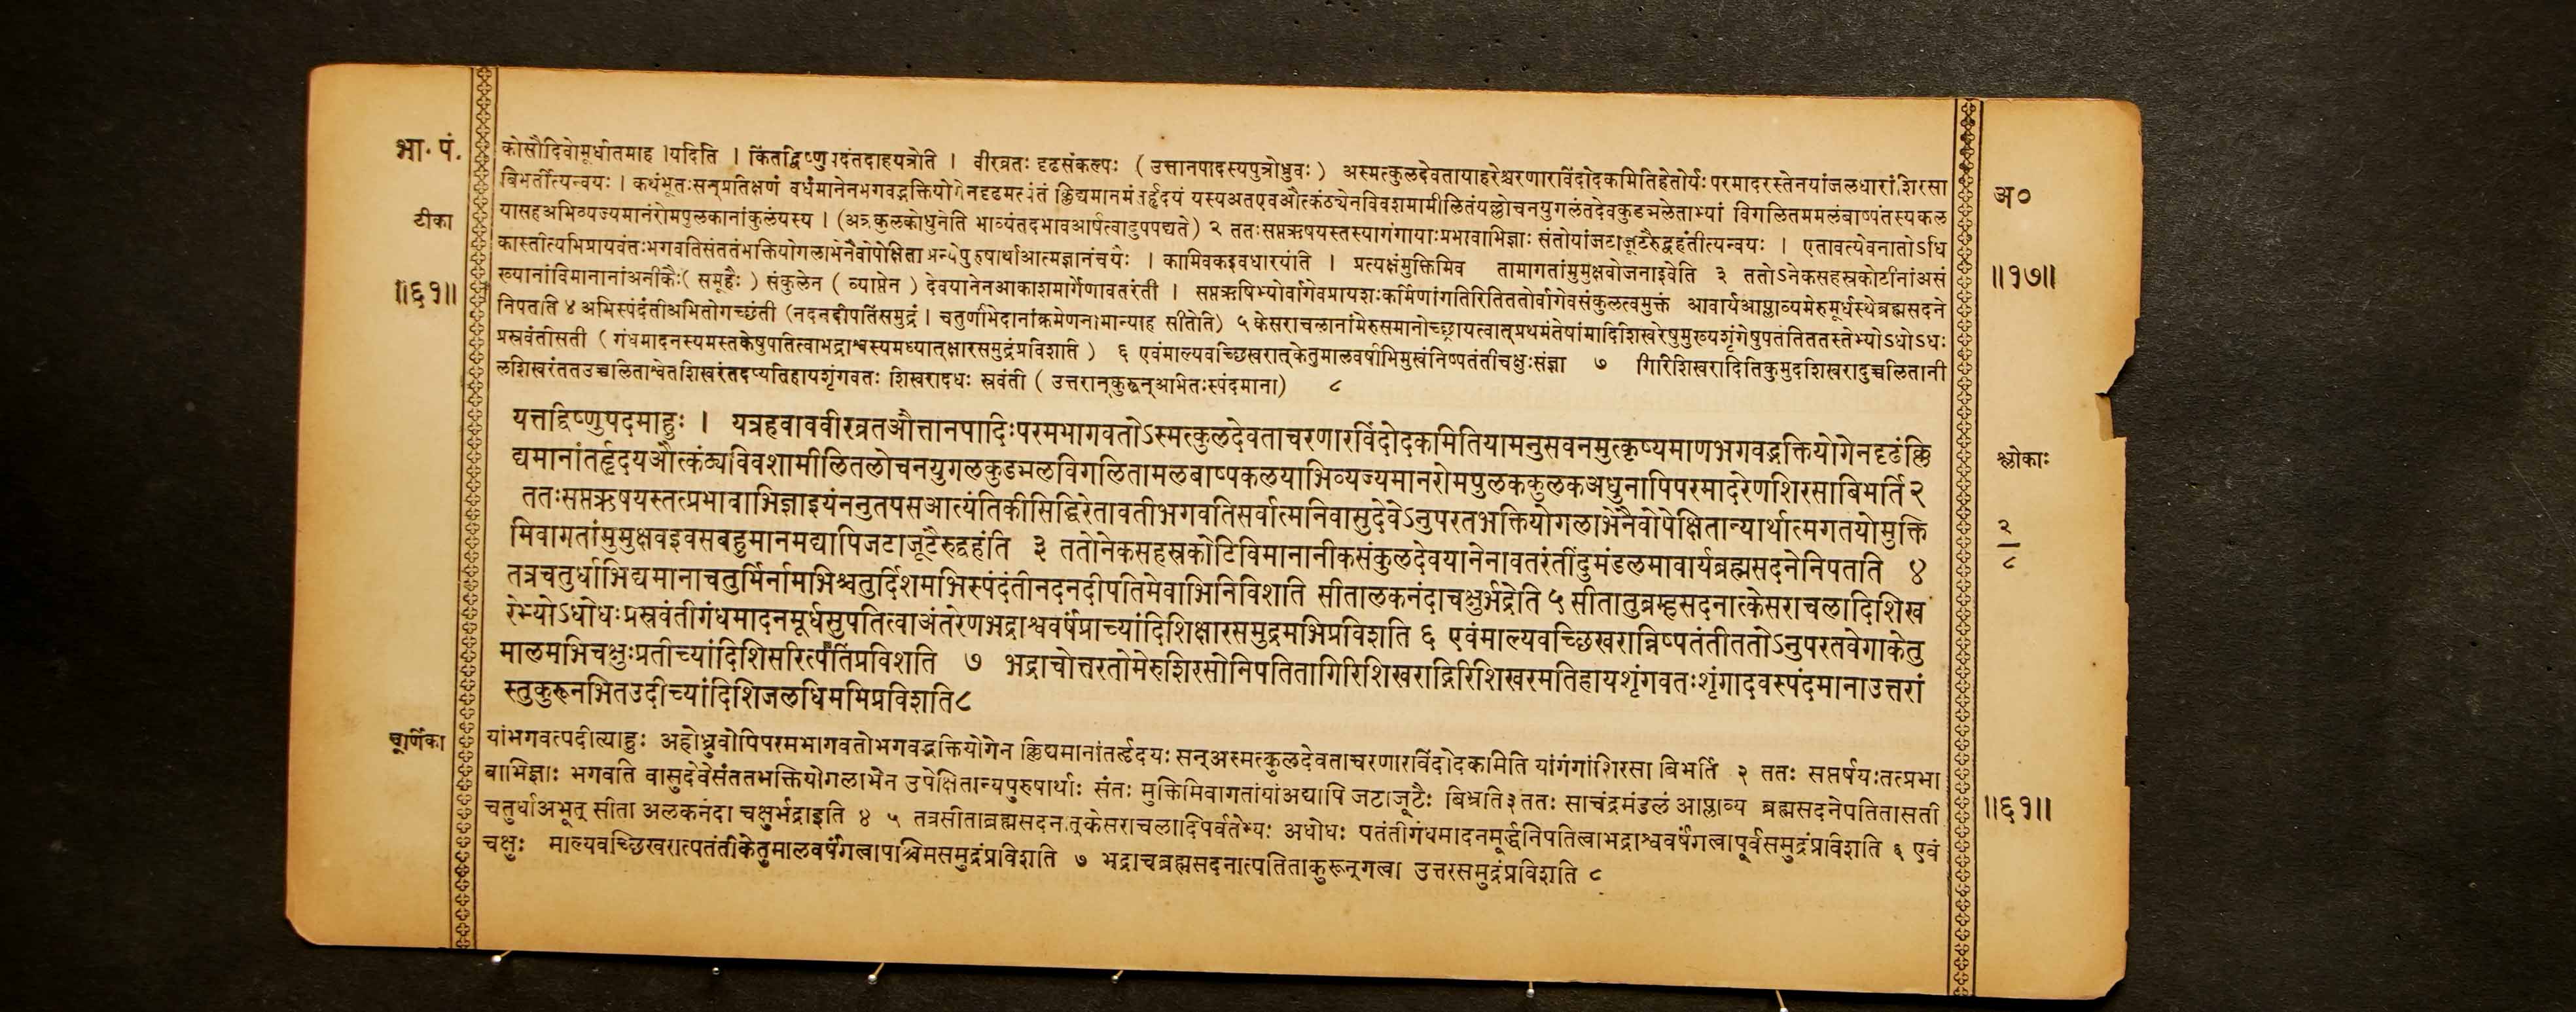 भा. पं.
टीका
॥६१॥
कोसौदिवोमूर्धातमाह ।यदिति । किंतद्विष्णु पदंतदाहयत्रोति । वीरव्रतः दृढसंकल्पः ( उत्तानपादस्यपुत्रोध्रुवः ) अस्मत्कुलदेवतायाहरेश्चरणारविंदोदकमितिहेतोर्यः परमादरस्तेनयांजलधारां शिरसा
बिभर्तीत्यन्वयः । कथंभूतःसन्प्रतिक्षणं वर्धमानेनभगवद्भक्तियोगेनदृढमत्यंतं क्लिद्यमानमंतर्हृदयं यस्यअतएवऔत्कंठ्येनविवशमामीलितंयल्लोचनयुगलंतदेवकुड्मलेताभ्यां विगलितममलंबाष्पंतस्यकल
यासहअभिव्यज्यमानंरोमपुलकानांकुलंयस्य । (अत्र कुलकोधुनेति भाव्यंतदभावआर्षत्वादुपपद्यते) २ ततःसप्तऋषयस्तस्यागंगायाःप्रभावाभिज्ञाः संतोयांजटाजूटैरुद्वहंतीत्यन्वयः । एतावत्येवनातोऽधि
कास्तीत्यभिप्रायवंतःभगवतिसंततंभक्तियोगलाभेनैवोपेक्षिता अन्येपुरुषार्थाआत्मज्ञानंचयैः । कामिवकइवधारयंति । प्रत्यक्षंमुक्तिमिव तामागतांमुमुक्षवोजनाइवेति ३ ततोऽनेकसहस्रकोटीनांअसं
ख्यानांविमानानांअनीकैः( समूहैः ) संकुलेन ( व्याप्तेन ) देवयानेनआकाशमार्गेणावतरंती । सप्तऋषिभ्योर्वागेवप्रायशःकर्मिणांगतिरितिततोर्वागेवसंकुलत्वमुक्तं आवार्यआप्लाव्यमेरुमूर्धस्थेब्रह्मसदने
निपतति ४ अभिस्पंदंतीअभितोगच्छंती (नदनदीपतिंसमुद्रं । चतुर्णाभेदानांक्रमेणनामान्याह सीतेति) ५ केसराचलानांमेरुसमानोच्छ्रायत्वात्प्रथमंतेषांमादिशिखरेषुमुख्यशृंगेषुपतंतिततस्तेभ्योऽधोऽधः
प्रस्रवंतीसती ( गंधमादनस्यमस्तकेषुपतित्वाभद्राश्वस्यमध्यात्क्षारसमुद्रंप्रविशति ) ६ एवंमाल्यवच्छिखरात्केतुमालवर्षाभिमुखंनिष्पतंतीचक्षुःसंज्ञा ७ गिरिशिखरादितिकुमुदशिखरादुच्चलितानी
लशिखरंततउच्चलिताश्वेतशिखरंतदप्यतिहायशृंगवतः शिखरादधः स्रवंती ( उत्तरान्कुरून्अभितःस्पंदमाना) ८
यत्तद्विष्णुपदमाहुः । यत्रहवाववीरव्रतऔत्तानपादिःपरमभागवतोऽस्मत्कुलदेवताचरणारविंदोदकमितियामनुसवनमुत्कृष्यमाणभगवद्भक्तियोगेनदृढंक्लि
द्यमानांतर्हृदयऔत्कंठ्यविवशामीलितलोचनयुगलकुड्मलविगलितामलबाष्पकलयाभिव्यज्यमानरोमपुलककुलकअधुनापिपरमादरेणशिरसाबिभर्ति २
ततःसप्तऋषयस्तत्प्रभावाभिज्ञाइयंननुतपसआत्यंतिकीसिद्धिरेतावतीभगवतिसर्वात्मनिवासुदेवेऽनुपरतभक्तियोगलाभेनैवोपेक्षितान्यार्थात्मगतयोमुक्ति
मिवागतांमुमुक्षवइवसबहुमानमद्यापिजटाजूटैरुद्वहंति ३ ततोनेकसहस्रकोटिविमानानीकसंकुलदेवयानेनावतरंतींदुमंडलमावार्यब्रह्मसदनेनिपतति ४
तत्रचतुर्धाभिद्यमानाचतुर्भिर्नामभिश्चतुर्दिशमभिस्पंदंतीनदनदीपतिमेवाभिनिविशति सीतालकनंदाचक्षुर्भद्रेति ५ सीतातुब्रम्हसदनात्केसराचलादिशिख
रेभ्योऽधोधःप्रस्रवंतीगंधमादनमूर्धसुपतित्वाअंतरेणभद्राश्ववर्षंप्राच्यांदिशिक्षारसमुद्रमभिप्रविशति ६ एवंमाल्यवच्छिखरान्निष्पतंतीततोऽनुपरतवेगाकेतु
मालमभिचक्षुःप्रतीच्यांदिशिसरित्पतिंप्रविशति ७ भद्राचोत्तरतोमेरुशिरसोनिपतितागिरिशिखराद्गिरिशिखरमतिहायशृंगवतःशृंगादवस्पंदमानाउत्तरां
स्तुकुरूनभितउदीच्यांदिशिजलधिममिप्रविशति८
चूर्णिका
यांभगवत्पदीत्याहुः अहोध्रुवोपिपरमभागवतोभगवद्भक्तियोगेन क्लिद्यमानांतर्हृदयः सन्अस्मत्कुलदेवताचरणारविंदोदकमिति यांगंगांशिरसा बिभर्ति २ ततः सप्तर्षयःतत्प्रभा
वाभिज्ञाः भगवति वासुदेवेसंततभक्तियोगलाभेन उपेक्षितान्यपुरुषार्थाः संतः मुक्तिमिवागतांयांअद्यापि जटाजूटैः बिभ्रति३ततः साचंद्रमंडलं आप्लाव्य ब्रह्मसदनेपतितासती
चतुर्धाअभूत् सीता अलकनंदा चक्षुर्भद्राइति ४ ५ तत्रसीताब्रह्मसदनात्केसराचलादिपर्वतेभ्यः अधोधः पतंतीगंधमादनमूर्द्धनिपतित्वाभद्राश्ववर्षंगत्वापूर्वसमुद्रंप्रविशति ६ एवं
चक्षुः माल्यवच्छिखरात्पतंतीकेतुमालवर्षंगत्वापश्चिमसमुद्रंप्रविशति ७ भद्राचब्रह्मसदनात्पतिताकुरून्गत्वा उत्तरसमुद्रंप्रविशति ८
अ०
॥१७॥
श्लोकाः
२
८
॥६१॥